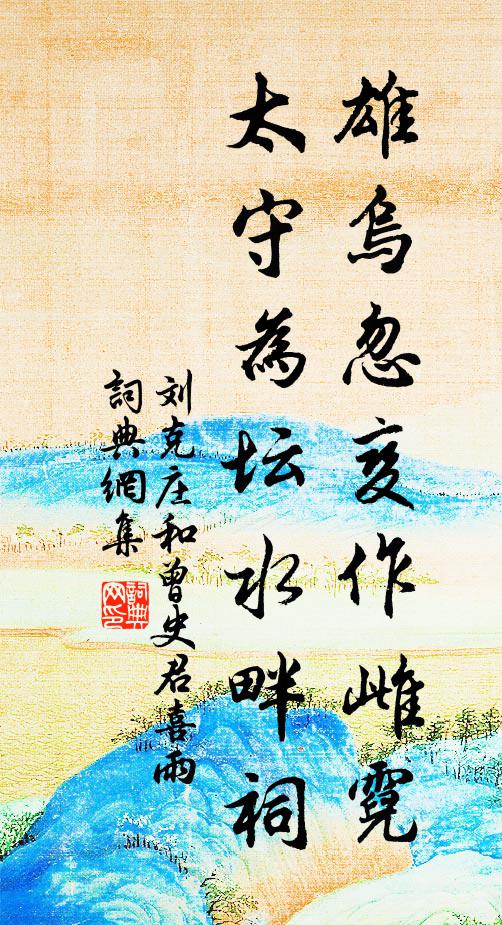 雄烏忽变作雌霓
太守為坛水畔祠
刘克庄和曾史君喜雨
詞典網集
詞典
网印